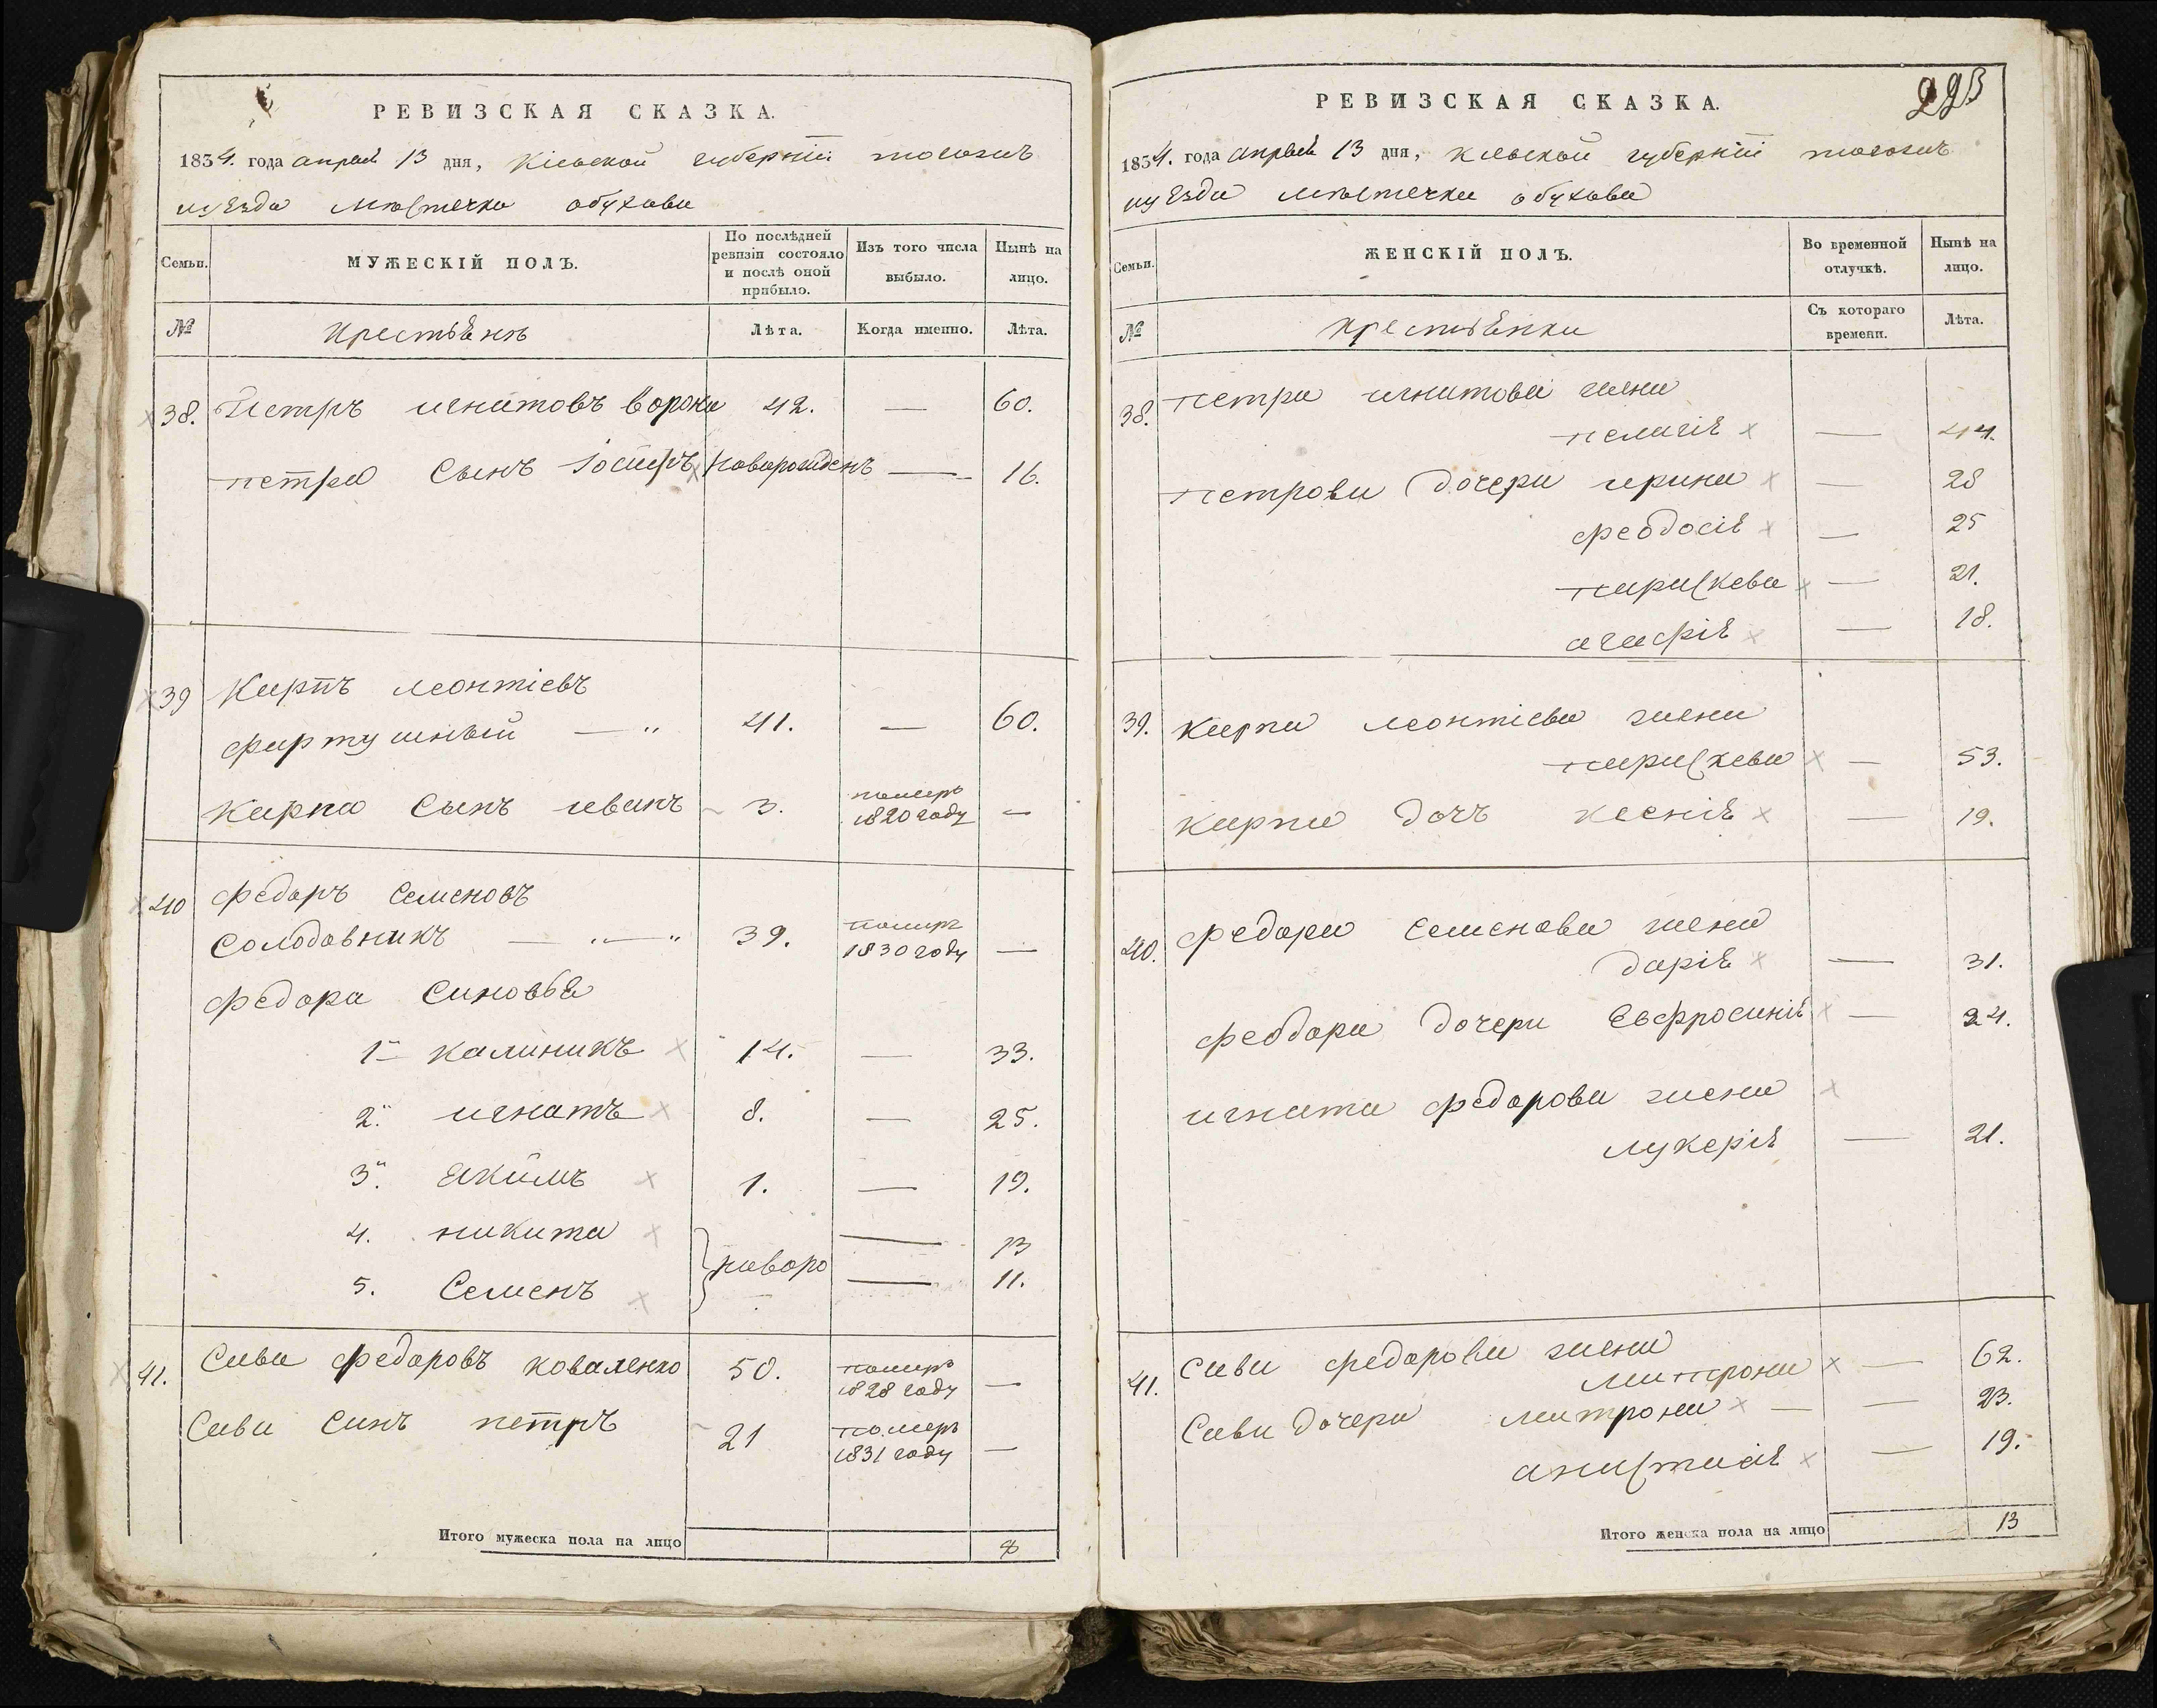 РЕВИЗСКАЯ СКАЗКА.
1834. года апреля 13 дня, Кіевской губерніи
уезда местечка обухова
Семьи. МУЖЕСКІЙ ПОЛЪ. По послѣдней ревизіи состояло и послѣ оной прибыло. Изъ того числа выбыло. Нынѣ на лицо.
№ Крестьѣнъ Лѣта. Когда именно. Лѣта.
38. Петръ игнатовъ ворона 42. — 60.
петра Сынъ Іосифъ новорожденъ — 16.
39 Карпъ леонтіевъ
фартушный — „ 41. — 60.
Карпа Сынъ иванъ 3. померъ 1820 году —
40 федоръ Семеновъ
Солодовникъ — „ — „ 39. померъ 1830 году —
федора Синовьѣ
1й калиникъ 14. — 33.
2й игнатъ 8. — 25.
3й ѣкимъ 1. — 19.
4. никита } новоро — 13
5. Семенъ — 11.
41. Сава федоровъ коваленко 50. померъ 1828 году —
Савы Синъ петръ 21 померъ 1831 году —
Итого мужеска пола на лицо 8
293
РЕВИЗСКАЯ СКАЗКА.
1834. года апреля 13 дня, кіевской губерніи
уезда местечка обухова
Семьи. ЖЕНСКІЙ ПОЛЪ. Во временной отлучкѣ. Нынѣ на лицо.
№ крестьѣнки Съ котораго времени. Лѣта.
38. петра игнатова жена
пелагіѣ — 44.
петрови дочери ирина — 28
феодосіѣ — 25
параскева — 21.
агафіѣ — 18.
39. Карпа леонтіева жена
параскева — 53.
карпа дочъ ксеніѣ — 19.
40. федора Семенова жена
даріѣ — 31.
феодора дочери Евфросиніѣ — 24.
игната федорова жена
лукеріѣ — 21.
41. Савы федорова жена
матрона — 62.
Савы дочери матрона — — 23.
анастасіѣ — 19.
Итого женска пола на лицо 13